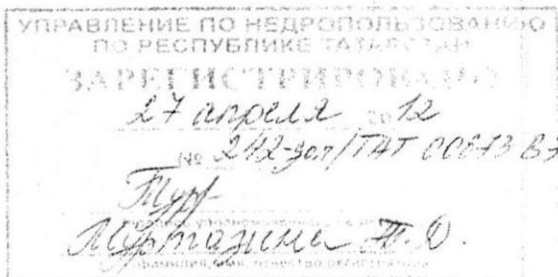 УПРАВЛЕНИЕ ПО НЕДРОПОЛЬЗОВАНИЮ
ПО РЕСПУБЛИКЕ ТАТАРСТАН
ЗАРЕГИСТРИРОВАНО
27 апреля 2012
№ 242-доп/ТАТ 00873 ВЭ
фамилия, имя, отчество